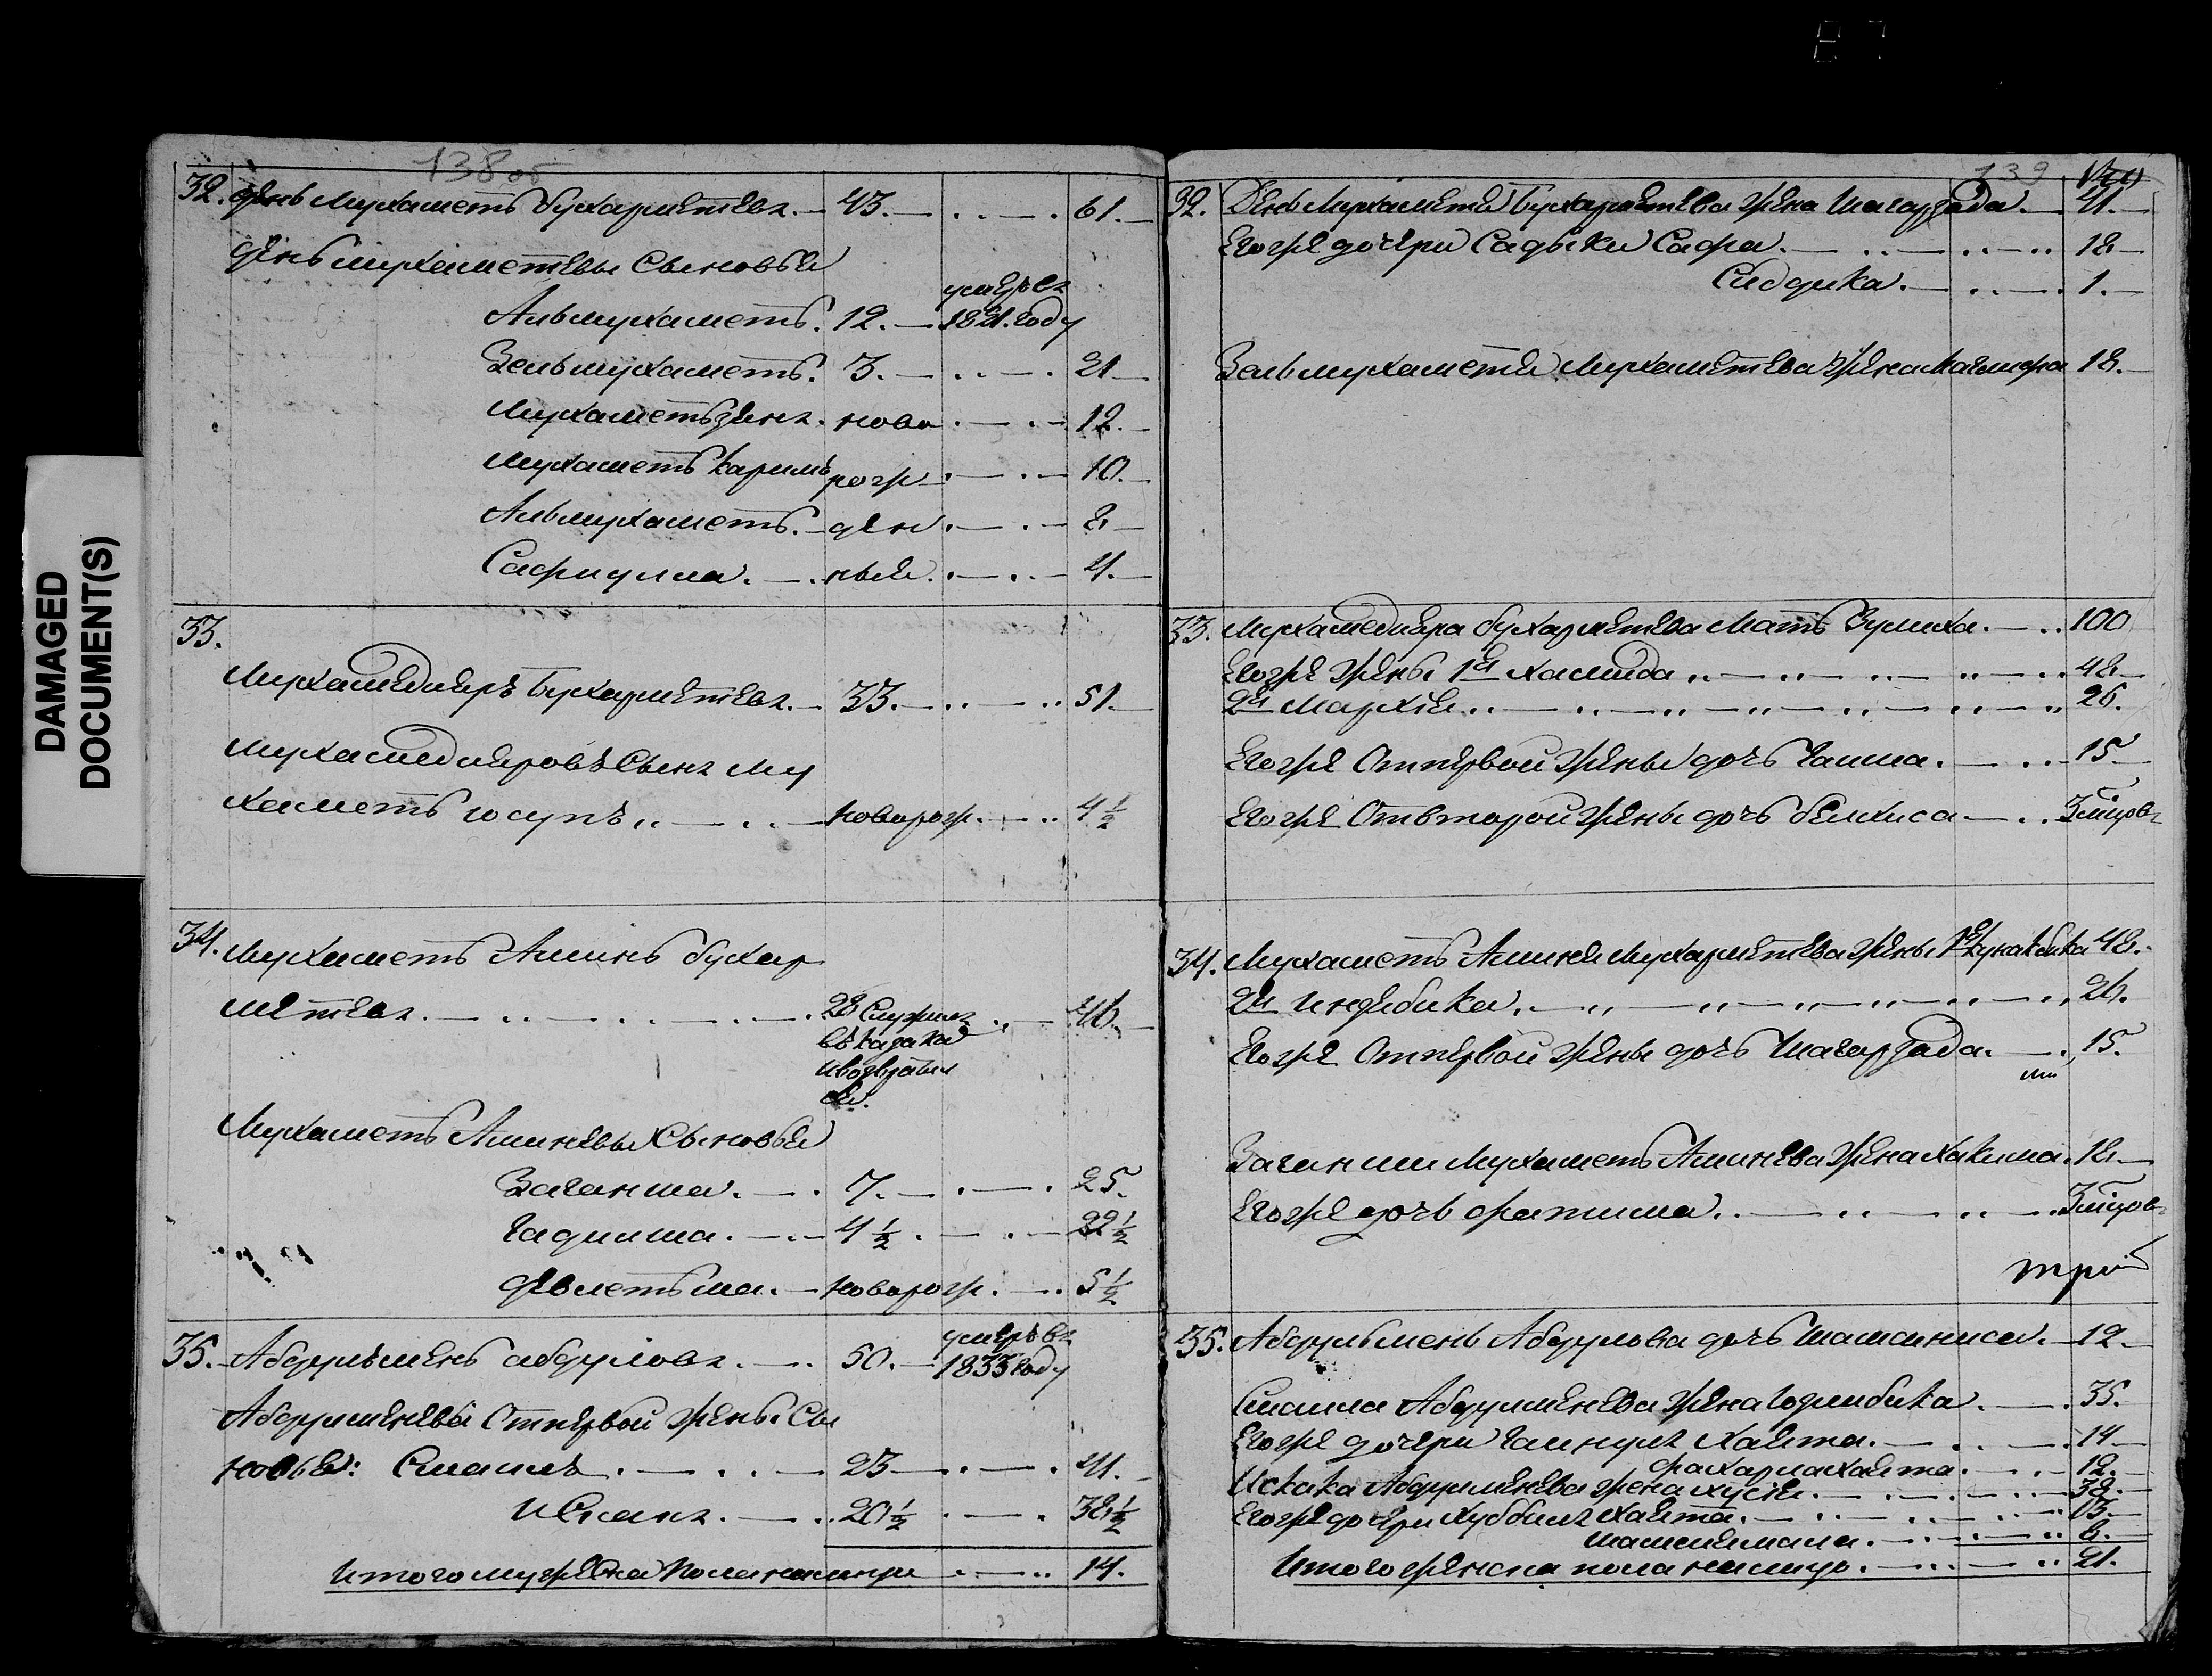 DAMAGED
DOCUMENT(S)
138 об
32. День Мухаметъ Бухарметевъ. 43. 61.
День Мухаметевы Сыновья
Альмухаметъ. 12. умеръ въ 1821. году
Зельмухаметъ. 3. 21
Мухаметьзянъ. ново 12.
Мухаметъ каримъ рож 10.
Альмухаметъ. ден 8.
Сафиулла. ные. 4.
33.
Мухамедияръ Бухарметевъ. 33. 51.
Мухамедияровъ Сынъ Му
хаметъ юсупъ новорож. 4 1/2
34. Мухаметъ Аминь бухар
метевъ. 28 Служилъ 46.
въ казака
и возврати
ся.
Мухаметъ Аминевы Сыновья
Заганша. 7. 25.
Гадиша. 4 1/2. 22 1/2
Девлетьша. новорож. 5 1/2
35. Абдулменъ абдуловъ. 50. умеръ въ 1833 году
Абдулменевы Отпервой жены Сы
новья: Смаилъ. 23 41.
Исканъ. 20 1/2 38 1/2
Итого мужеска пола налицо 14.
139
32. День Мухаметя Бухарметева жена Шагарзада. 41.
Егоже дочери Садыка Сафа. 18
Сиддика. 1.
Зельмухаметя Мухаметева жена 18.
33. Мухамедияра бухарметева Мать Зулиха. 100
Егоже жены 1я хамида 48
2я Мархія 26.
Егоже Отпервой жены дочь Гайша. 15
Егоже Отвторой жены дочь белкиса 3 мцовъ
34. Мухаметъ Аминя Мухарметева жены 1я 48.
2я индебика. 26.
Егоже Отпервой жены дочь Шагарзада. 15.
Заганши Мухаметъ Аминева жена Хакима. 18.
Егоже дочь фатима. 3 мцов
35. Абдульмень Абдулова дочь шамсиниса. 12.
Смаила Абдулменева жена Юзлибика. 35.
Егоже дочери Гайнулъ хаята. 14
фахарлхаята. 12.
Искака Абдулменева жена хусне. 38.
Егоже дочери Хуббилъ хаята. 13.
шамсиямала. 6.
Итого женска пола налицо. 21.